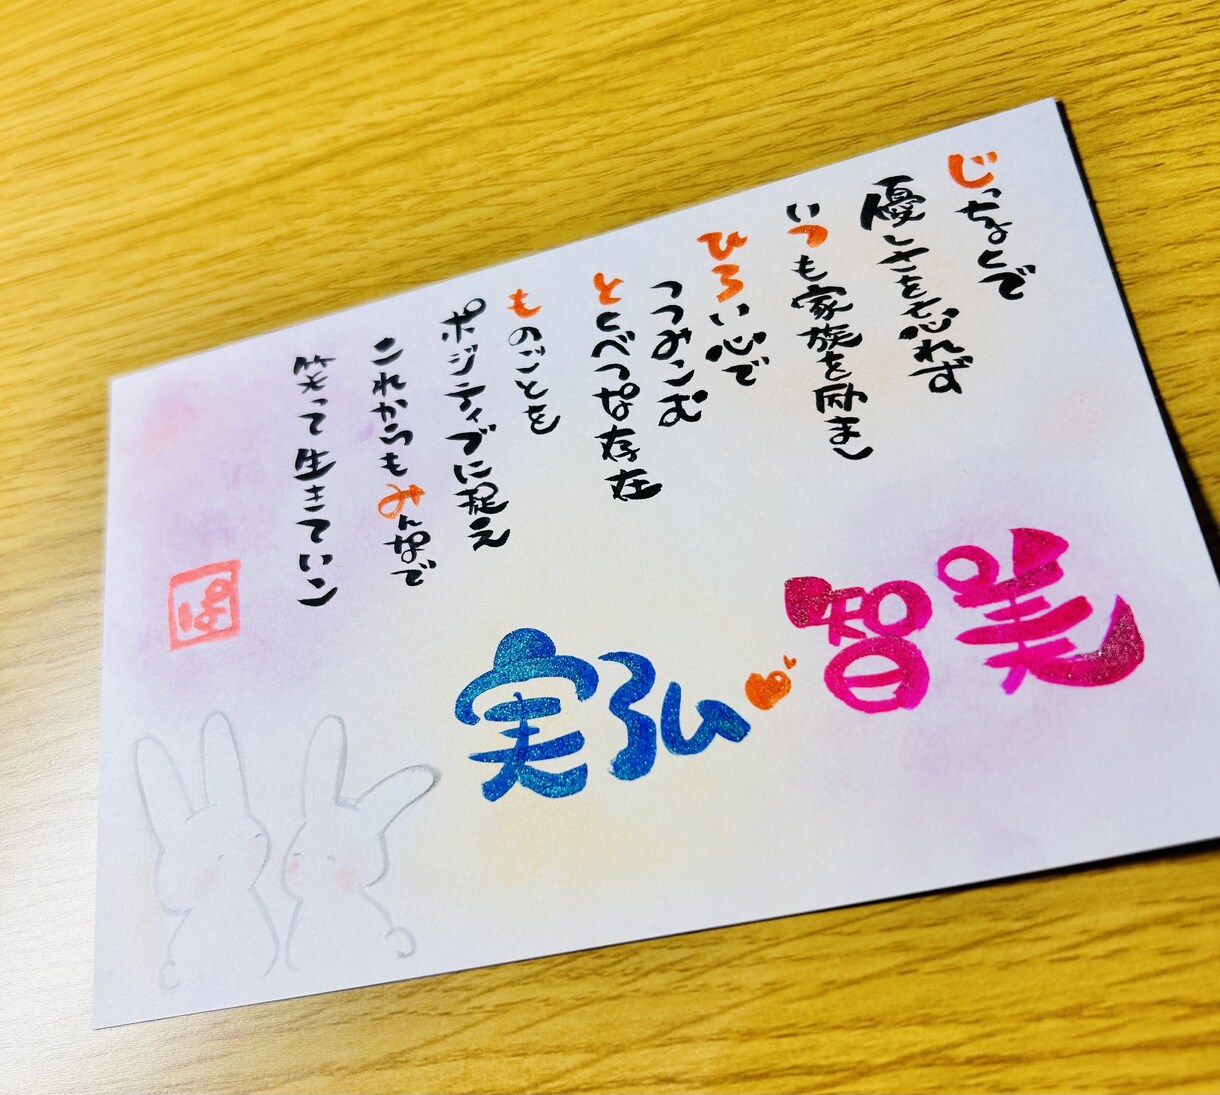 じっちょくで
優しさを忘れず
いつも家族を励まし
ひろい心で
つつみこむ
とくべつな存在
ものごとを
ポジティブに捉え
これからもみんなで
笑って生きていこう
ぱ
実弘 智美